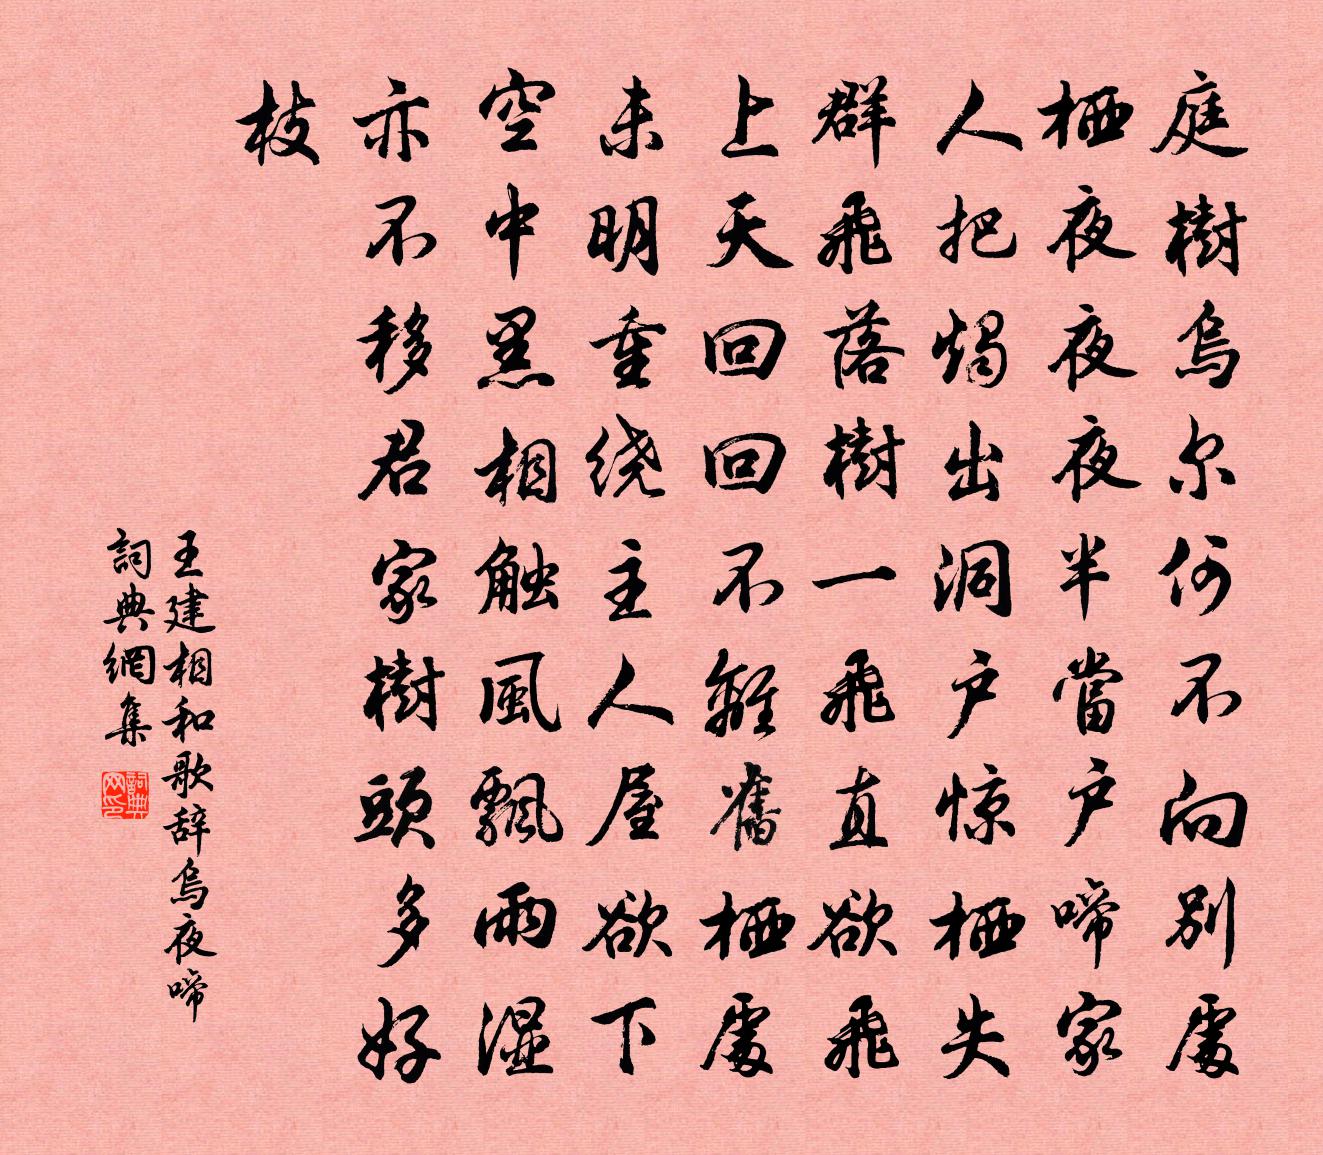 庭樹烏尔何不向别處
栖夜夜夜半當户啼家
人把燭出洞户惊栖失
群飛落樹一飛直欲飛
上天回回不離舊栖處
未明重绕主人屋欲下
空中黑相触風飄雨湿
亦不移君家樹頭多好
枝
王建相和歌辞烏夜啼
詞典網集
詞典网印